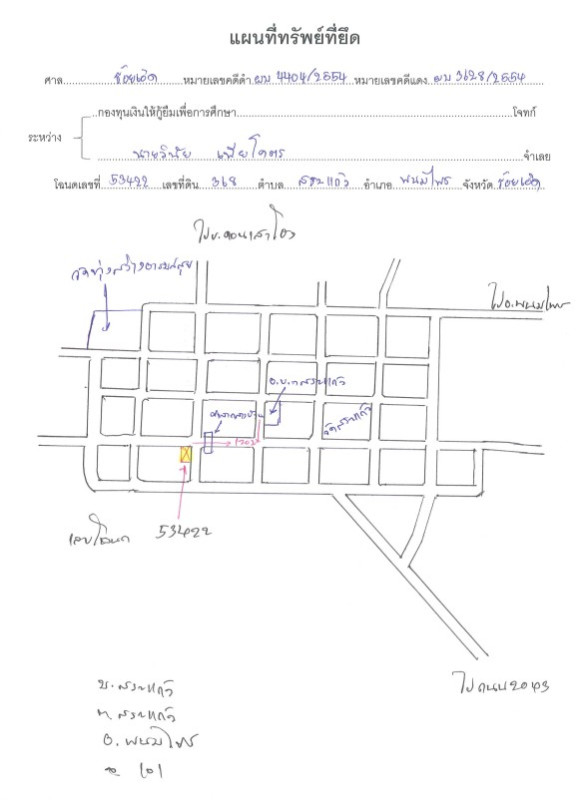 แผนที่ทรัพย์ที่ยึด
ศาล ร้อยเอ็ด หมายเลขคดีดำ ผบ 4404/2554 หมายเลขคดีแดง ผบ 3628/2554
กองทุนเงินให้กู้ยืมเพื่อการศึกษา โจทก์
ระหว่าง
นายวินัย เพียโคตร จำเลย
โฉนดเลขที่ 53422 เลขที่ดิน 368 ตำบล สระแก้ว อำเภอ พนมไพร จังหวัด ร้อยเอ็ด
ไปบ.ดอนเสาโฮง
วัดทุ่งสว่างอารมณ์สุข
ไปอ.พนมไพร
อ.บ.ต.สระแก้ว
ศาลากลางบ้าน
วัดสระแก้ว
เลขโฉนด 53422
ไปถนน 2043
บ.สระแก้ว
ต.สระแก้ว
อ.พนมไพร